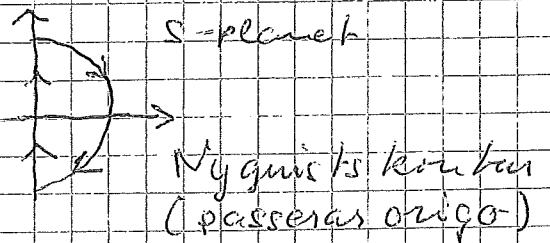 s-planet
Nyquists kontur
(passerar origo)